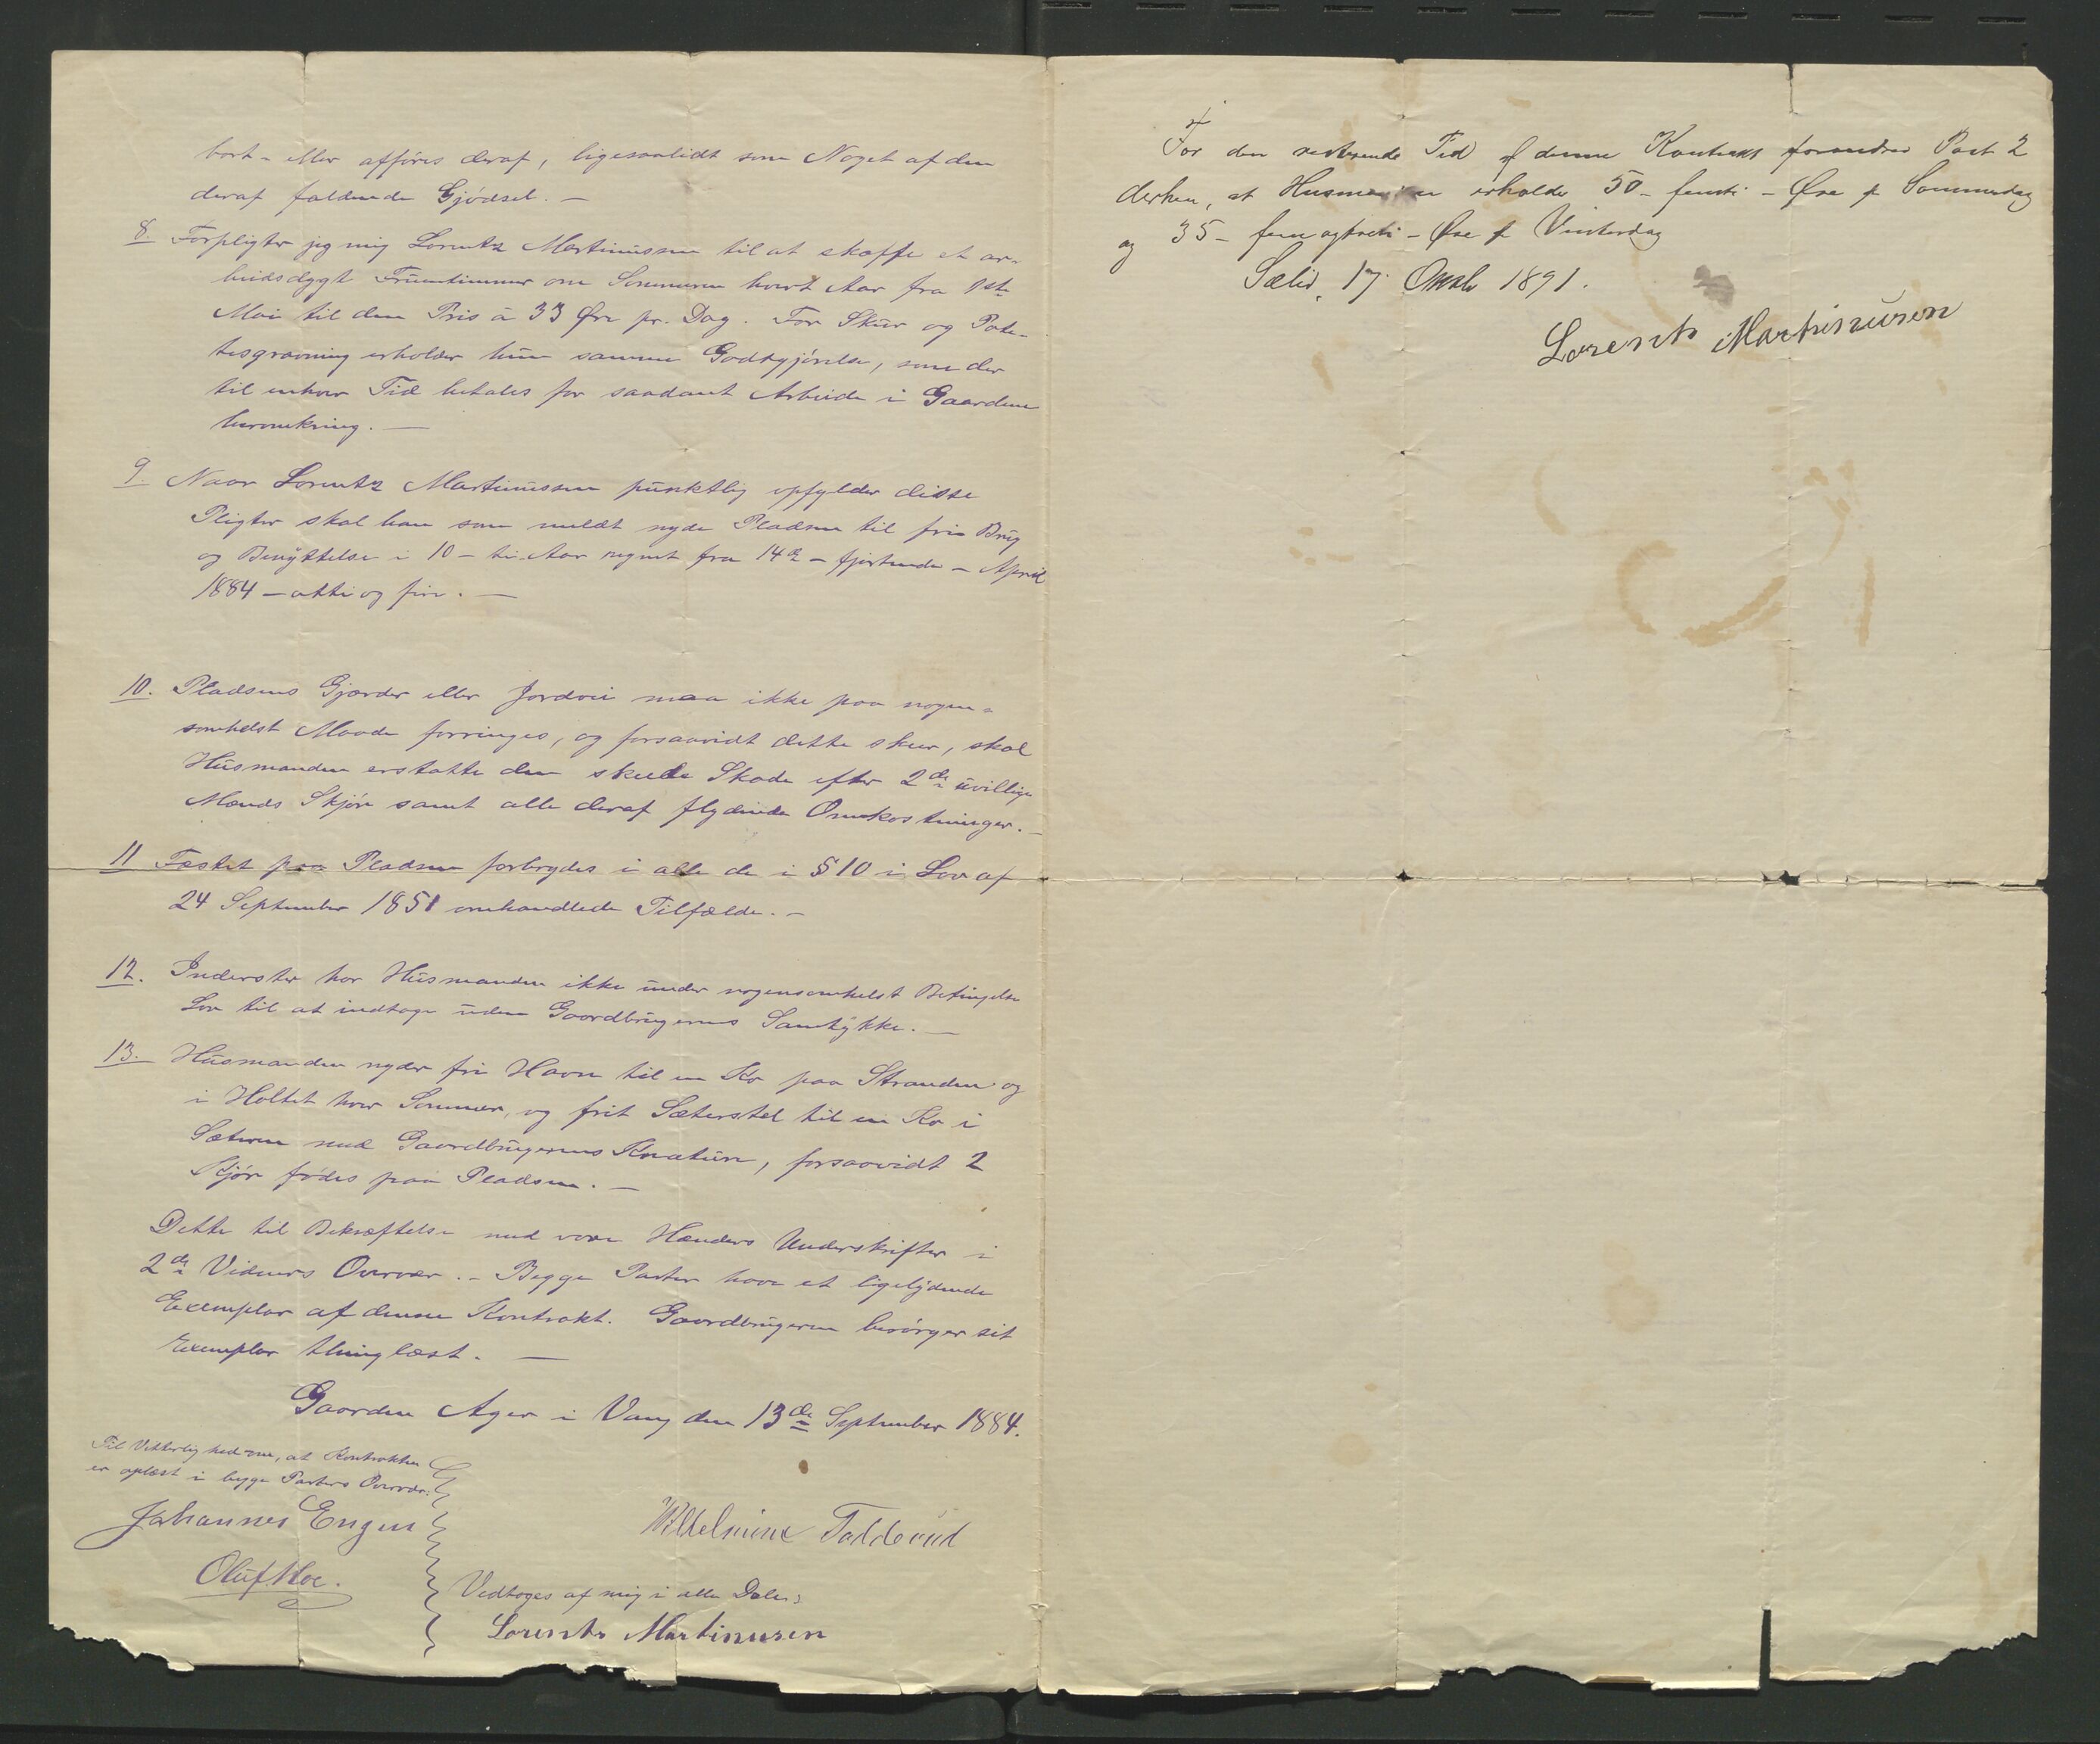 bort- eller afføres deraf, ligesaalidt som Noget af den
deraf faldende Gjødsel. —
8. Forpligter jeg mig Lorentz Martinussen til at skaffe et ar-
beidsdygt Fruentimmer om Sommeren hvert Aar fra 1ste
Mai til den Pris á 33 Øre pr. Dag. For Skur og Pote-
tesgravning erholder hun samme Godtgjørelse, som der
til enhver Tid betales for saadant Arbeide i Gaardene
heromkring. —
9. Naar Lorentz Martinussen punktlig opfylder disse
Pligter skal han som meldt nyde Pladsen til fri Brug
og Benyttelse i 10 – ti Aar regnet fra 14de – fjortende – April
1884 – otti og fire. —
10. Pladsens Gjærder eller Jordvei maa ikke paa nogen-
somhelst Maade forringes, og forsaavidt dette skeer, skal
Husmanden erstatte den skeede Skade efter 2de uvillige
Mænds Skjøn samt alle deraf flydende Omkostninger. —
11 Fæstet paa Pladsen forbrydes i alle de i § 10 i Lov af
24 September 1851 omhandlede Tilfælde. —
12. Inderster har Husmanden ikke under nogensomhelst Betingelse
Lov til at indtage uden Gaardbrugerens Samtykke. —
13. Husmanden nyder fri Havn til en Ko paa Stranden og
i Holtet hver Sommer, og frit Sæterstel til en Ko i
Sæteren med Gaardbrugerens Kreature, forsaavidt 2
Kjør fødes paa Pladsen. —
Dette til Bekræftelse med vore Hænders Underskrifter i
2de Vidners Overvær. – Begge Parter have et ligelydende
Exemplar af denne Kontrakt. Gaardbrugeren besørger sit
Exemplar thinglæst. —
Gaarden Ager i Vang den 13de September 1884.
Til Vitterlighed om, at Kontrakten
er oplæst i begge Parters Overvær:
Johannes Engen
Oluf Moe.
Wilhelmine Taldorud
Vedtages af mig i alle Dele:
Lorents Martinusen
For den resterende Tid af denne Kontrakt forandres Post 2
derhen, at Husmanden erholder 50 – femti – Øre pr Sommerdag
og 35 – fem og treti – Øre pr Vinterdag
Sælid, 17. 1891.
Lorents Martinusen